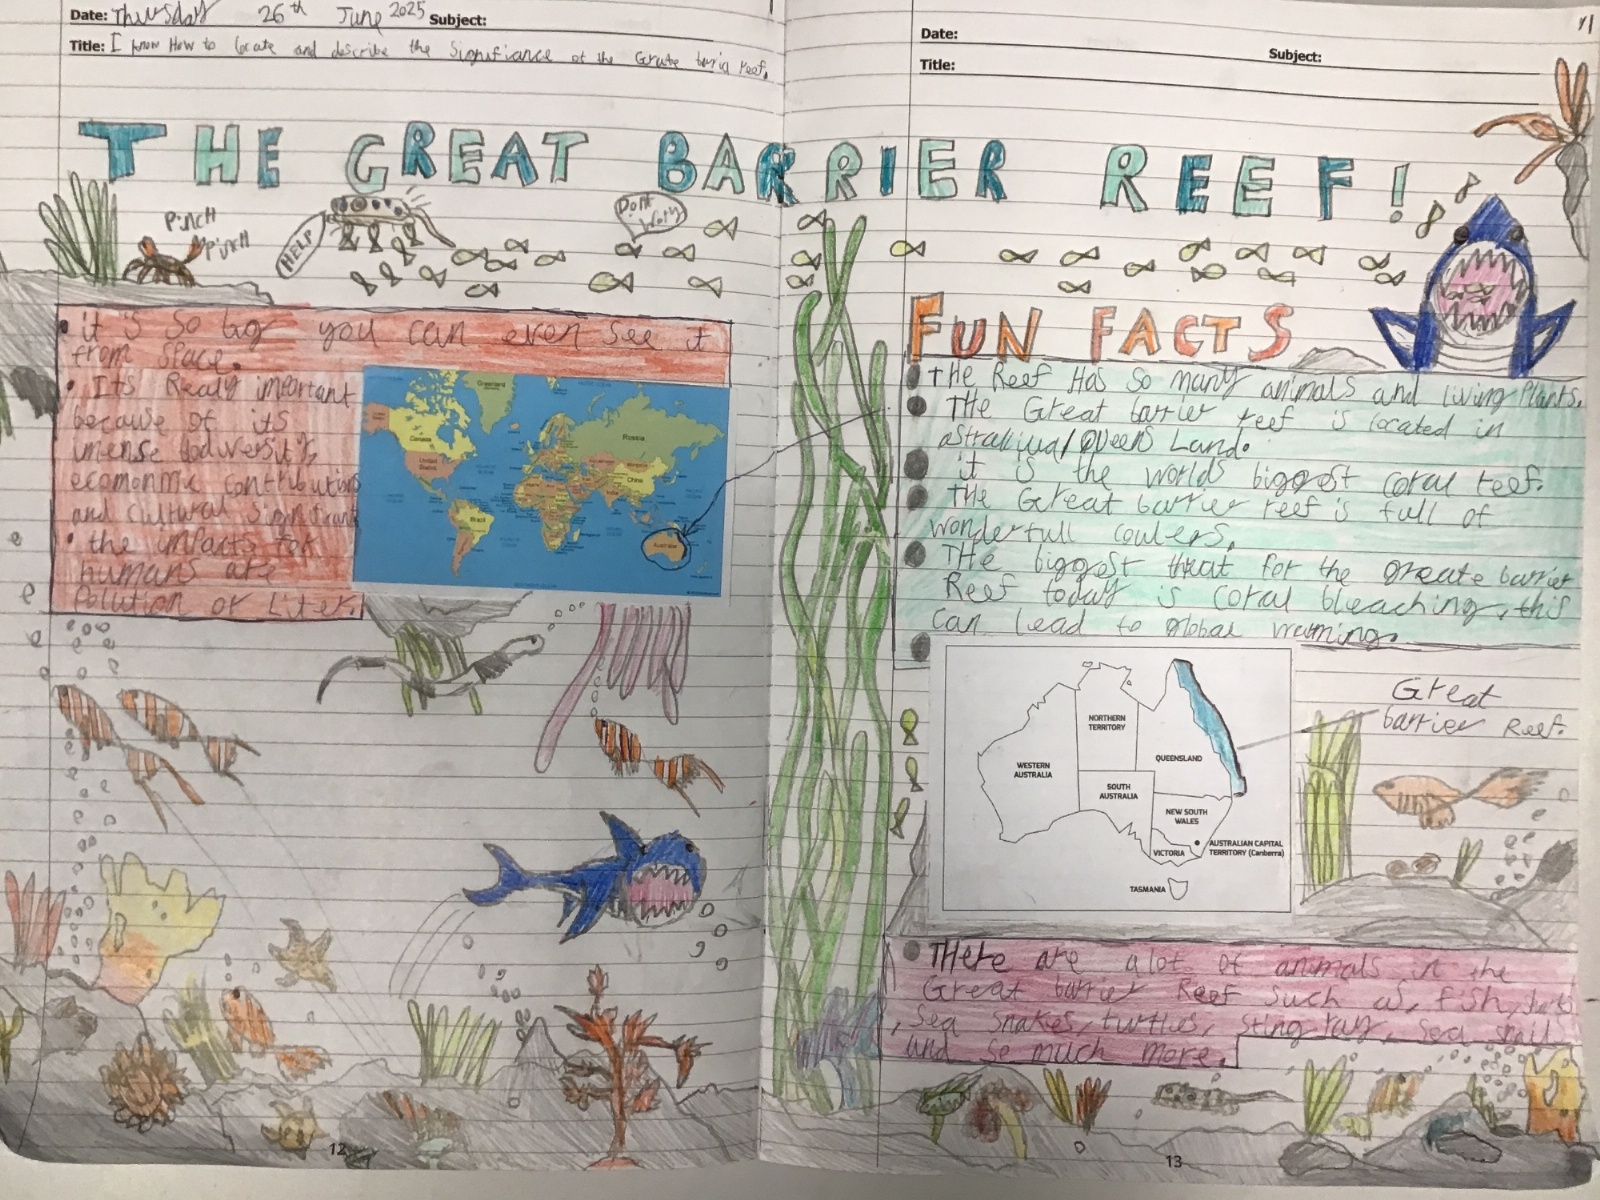 Date: Thursday 26th June 2025 Subject:
Title: I know How to locate and describe the Signifiance of the Grate bariq reef.
THE GREAT BARRIER REEF!
PincH
Pinch
HELP
Dont Worry
• it's So big you can even see it
from Space.
• Its Realy important
because of its
imense bodiversity,
econommic contributions
and cultural Significant
• the impacts for
humans are
Polution or Liter.
Greenland
Canada
United States
Russia
China
Brazil
Australia
12
Date: Subject:
Title:
FUN FACTS
the Reef Has So many animals and living Plants.
THE Great barrier reef is located in
astraliua/Queens Land.
it is the worlds biggest coral reef.
THE Great barrier reef is full of
wonderfull coulers.
THE biggest threat for the greate barrier
Reef today is coral bleaching, this
can lead to global wrming.
Great
barrier Reef.
NORTHERN
TERRITORY
WESTERN
AUSTRALIA
QUEENSLAND
SOUTH
AUSTRALIA
NEW SOUTH
WALES
VICTORIA
AUSTRALIAN CAPITAL
TERRITORY (Canberra)
TASMANIA
THere are alot of animals in the
Great barrier Reef Such as, fish,
, Sea Snakes, turtles, Sting ray, Sea snail
and so much more.
13